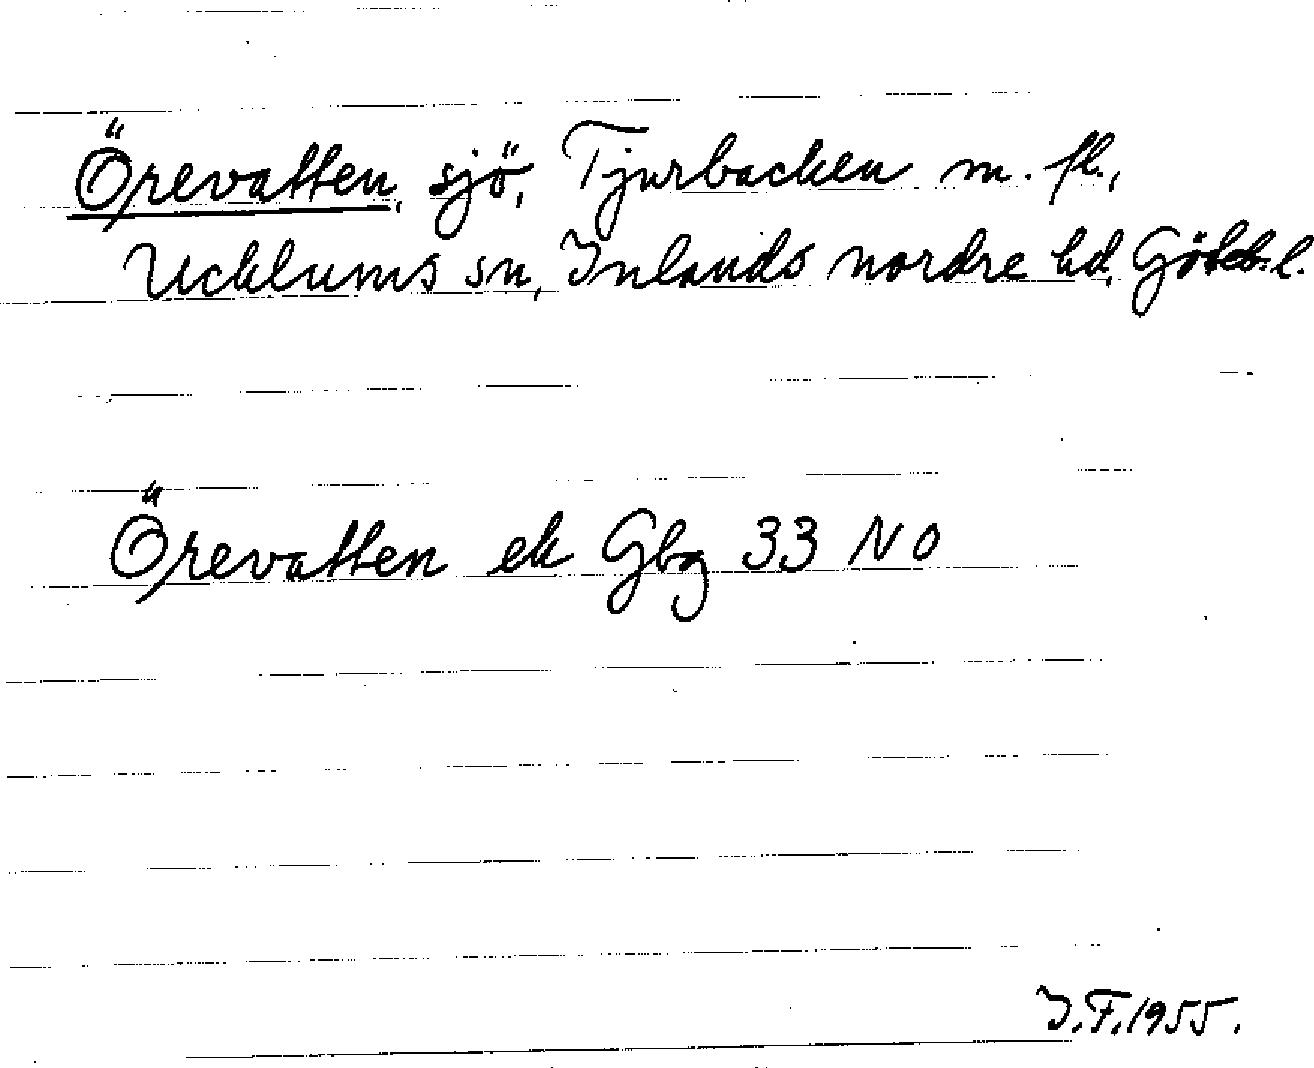 Örevatten, sjö, Tjurbacken m. fl.,
Ucklums sn, Inlands nordre hd, Götеb. l.
Örevatten ek Gbg 33 NO
I.F. 1955.